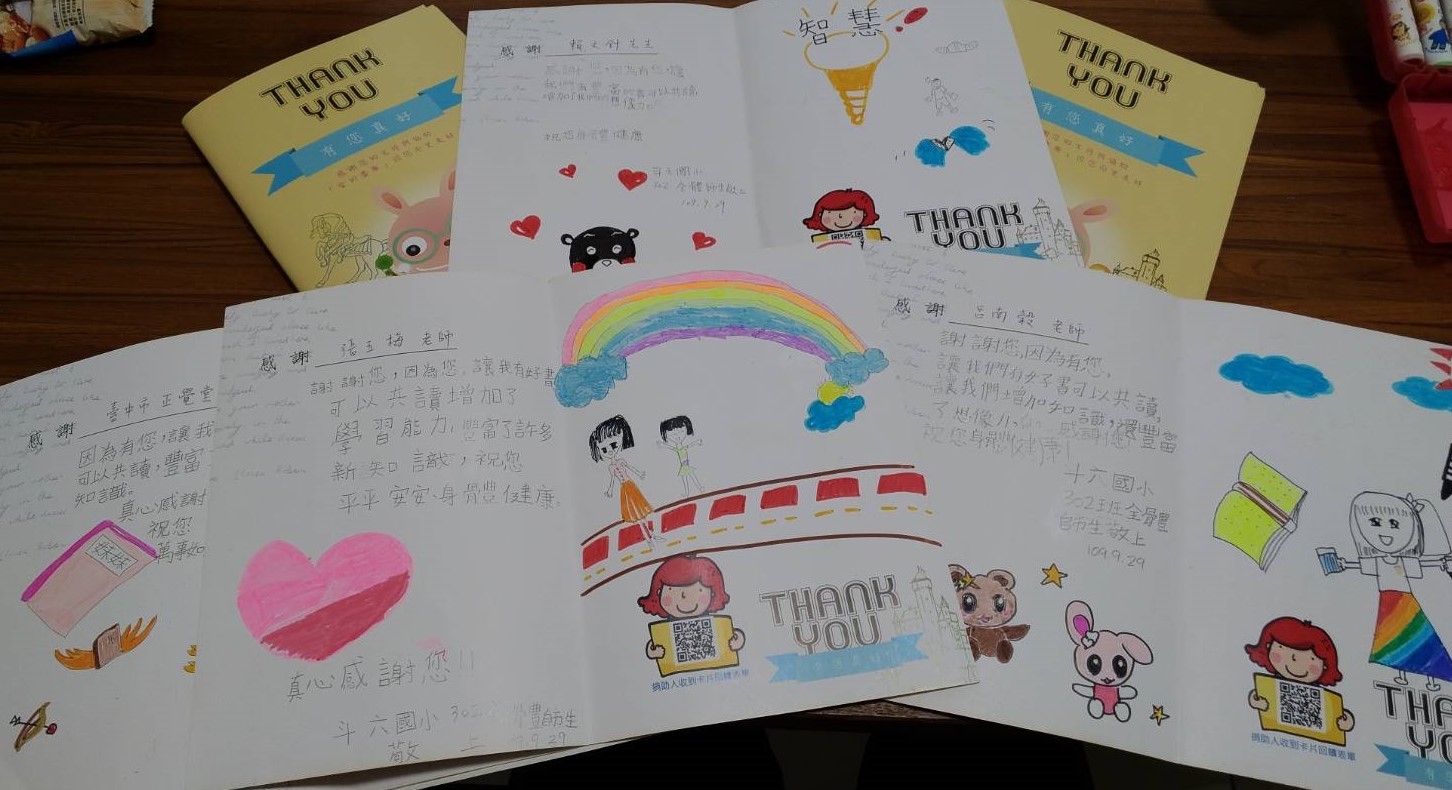 THANK
YOU
有您真好
感謝 賴文針先生
感謝您,因為有您,讓
我們有豐富的書可以共讀,
增加了我們的想像力。
祝您身體健康
斗六國小
302全體師生敬上
109.9.29
智慧
THANK
YOU
THANK
YOU
有您真好
感謝 臺中市正覺堂
因為有您,讓我
可以共讀,豐富
知識。
真心感謝
祝您
萬事如
妹妹
感謝 張玉梅 老師
謝謝您,因為您,讓我有好書
可以共讀增加了
學習能力,豐富了許多
新知識,祝您
平平安安、身體健康。
真心感謝您!!
斗六國小302
體師生
敬上
9.29
THANK
YOU
捐助人收到卡片回饋表單
感謝 呂南毅 老師
謝謝您,因為有您,
讓我們有好書可以共讀,
讓我們增加知識,還豐富
了想像力,感謝您!
祝您身體健康!
斗六國小
302班全體
師生敬上
109.9.29
捐助人收到卡片回饋表單
THANK
YO
有